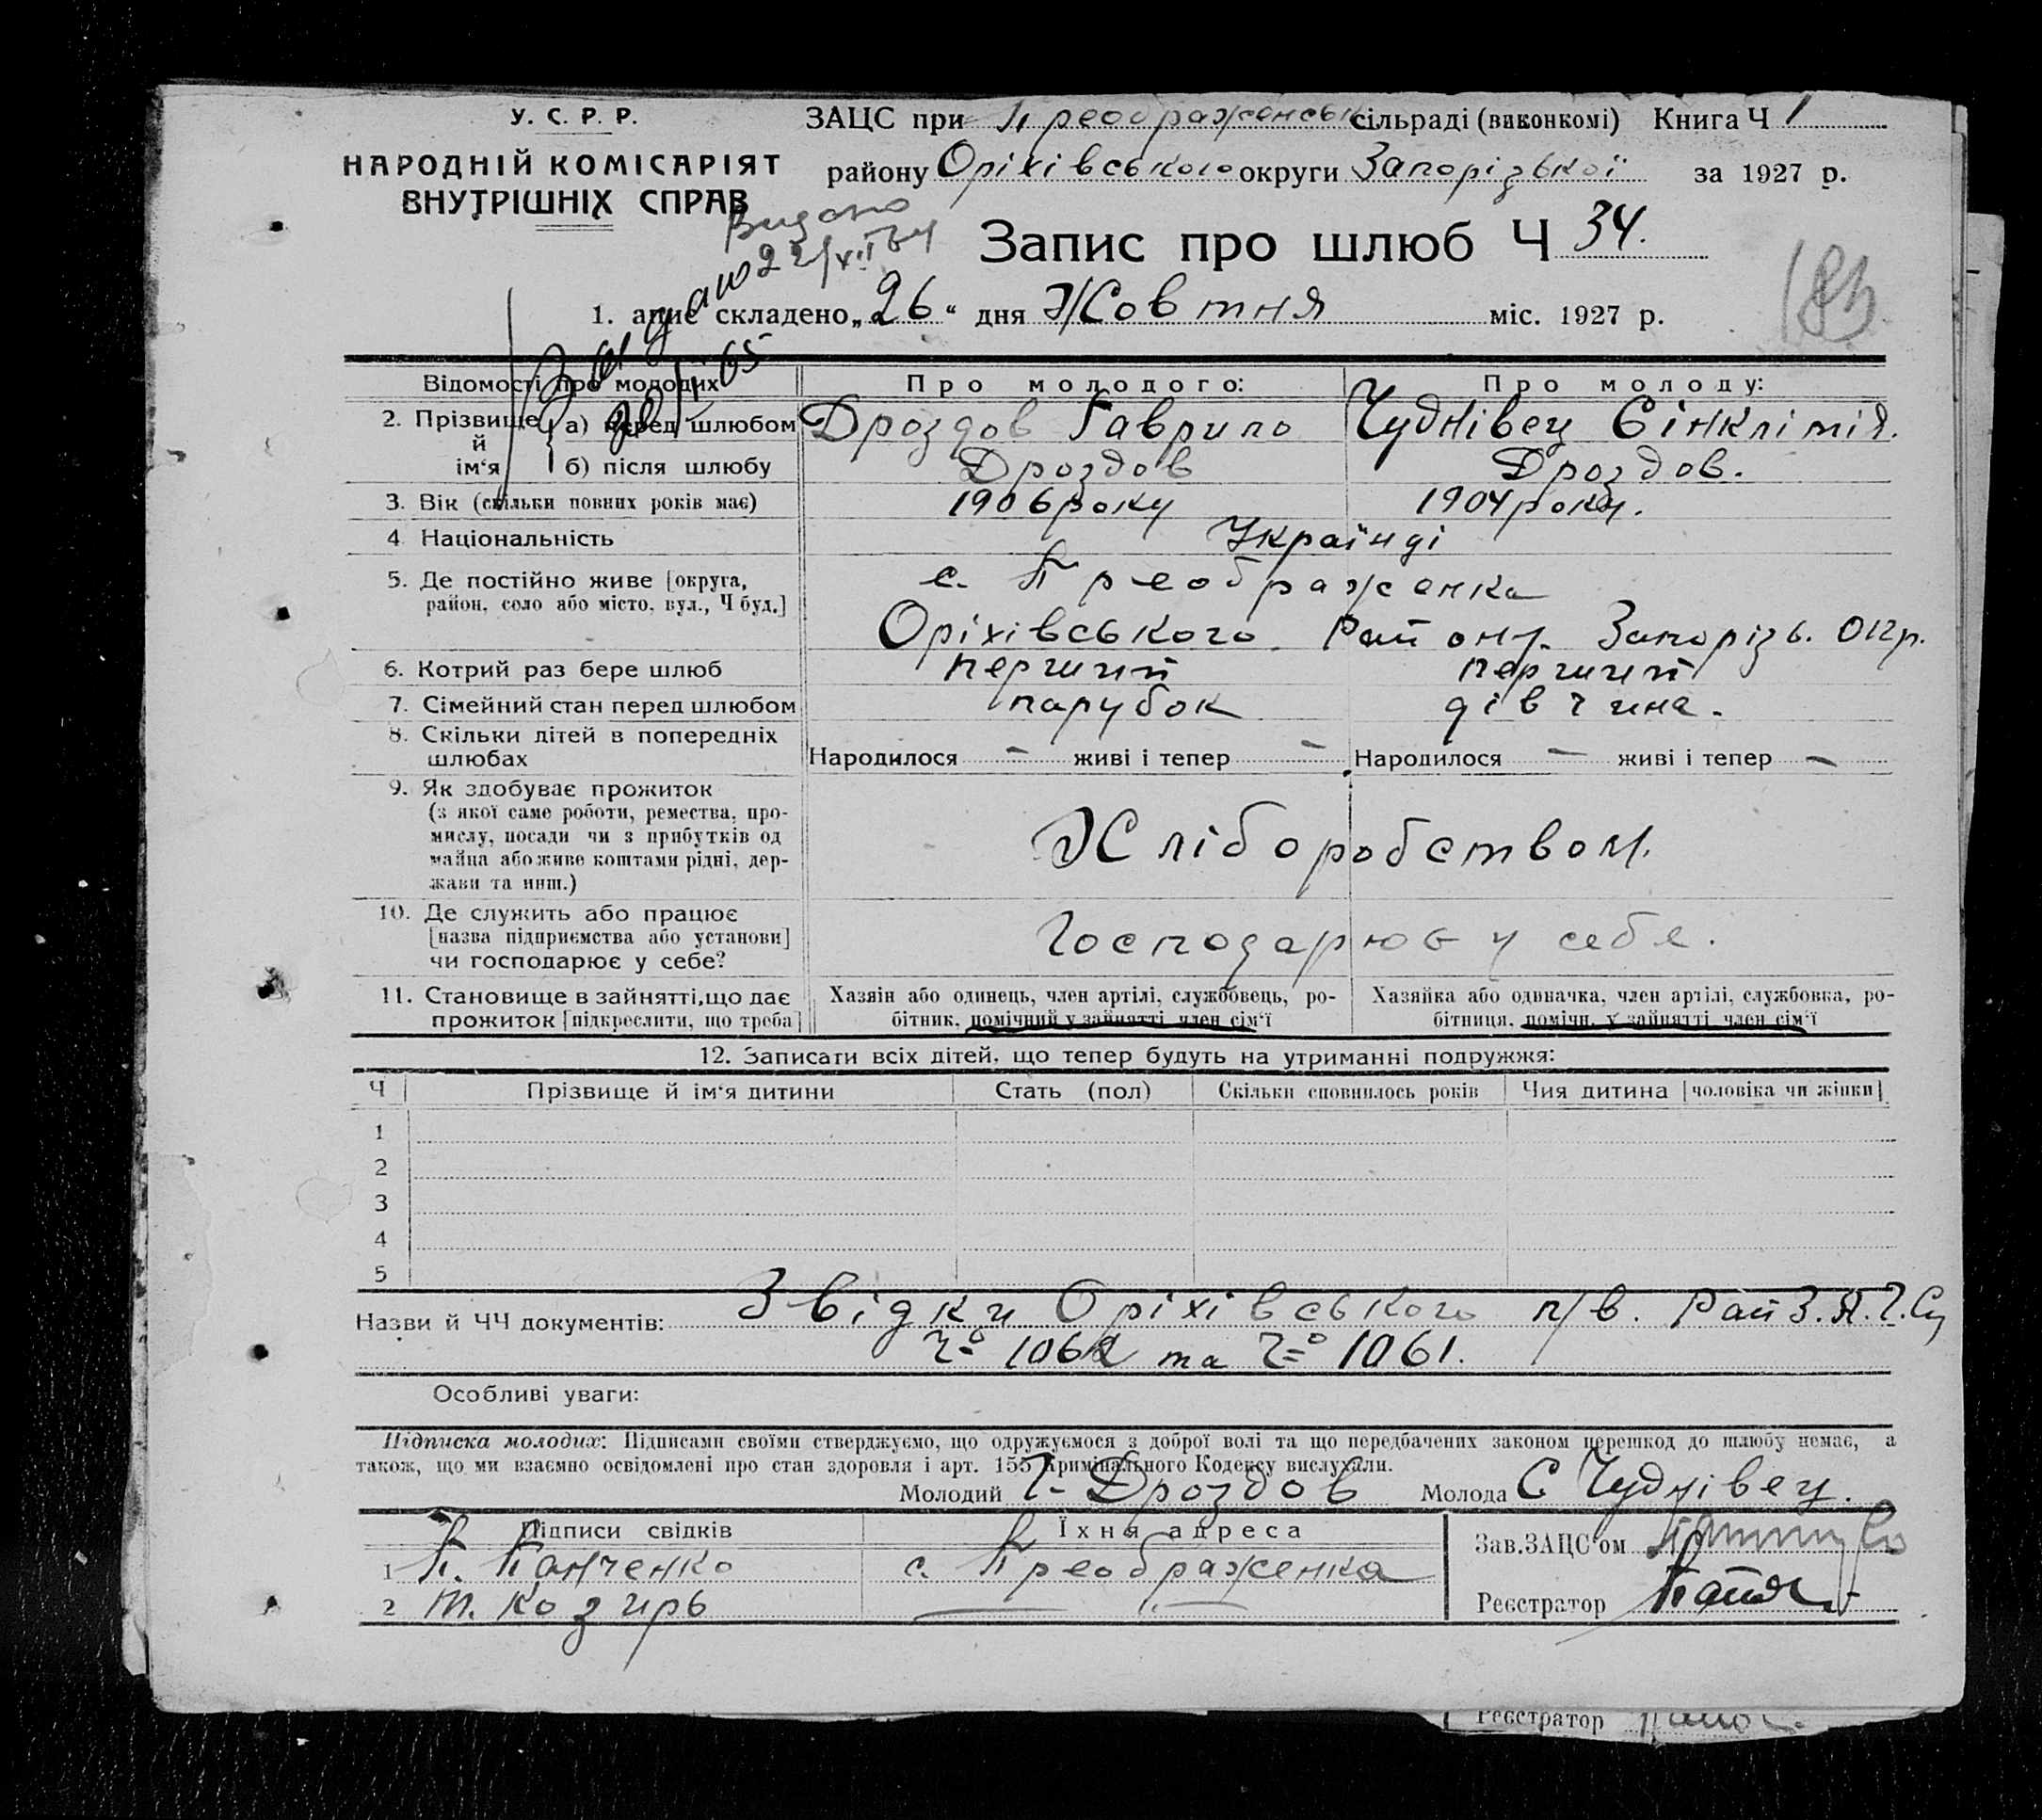 У. С. Р. Р.
НАРОДНІЙ КОМІСАРІЯТ
ВНУТРІШНІХ СПРАВ
ЗАЦС при Преображенськ сільраді (виконкомі) Книга Ч 1
району Оріхівського округи Запорізької за 1927 р.
Видано
22/XII 64
Запис про шлюб Ч 34.
1. апис складено „26“ дня Жовтня міс. 1927 р.
Видано
65
Відомості про молодих
Про молодого:
Про молоду:
2. Прізвище й ім‘я
а) перед шлюбом
Дроздов Гаврило
Чуднівец Сінклітія.
б) після шлюбу
Дроздов
Дроздов.
3. Вік (скільки повних років має)
1906 року
1904 року.
4 Національність
Українці
5. Де постійно живе [округа,
район, село або місто, вул., Ч буд.]
с. Преображенка
Оріхівського Район. Запорізь. Окр.
6. Котрий раз бере шлюб
перший
перший
7. Сімейний стан перед шлюбом
парубок
дівчина.
8. Скільки дітей в попередніх
шлюбах
Народилося — живі і тепер —
Народилося — живі і тепер —
9. Як здобуває прожиток
(з якої саме роботи, ремества, про-
мислу, посади чи з прибутків од
майна або живе коштами рідні, дер-
жави та инш.)
Хліборобством.
10. Де служить або працює
[назва підприємства або установи]
чи господарює у себе?
Господарює у себе.
11. Становище в зайнятті, що дає
прожиток [підкреслити, що треба]
Хазяін або одинець, член артілі, службовець, ро-
бітник, помічний у зайнятті член сім‘ї
Хазяйка або одиначка, член артілі, службовка, ро-
бітниця, помічн. у зайнятті член сім‘ї
12. Записати всіх дітей, що тепер будуть на утриманні подружжя:
Ч
Прізвище й ім‘я дитини
Стать (пол)
Скільки сповнилось років
Чия дитина [чоловіка чи жінки]
1
2
3
4
5
Назви й ЧЧ документів: Звідки Оріхівського п/в. Рай З.А.Г.Су
Ч° 1062 та Ч° 1061.
Особливі уваги:
Підписка молодих: Підписами своїми стверджуємо, що одружуємося з доброї волі та що передбачених законом перешкод до шлюбу немає, а
також, що ми взаємно освідомлені про стан здоровля і арт. 155 Кримінального Кодексу вислухали.
Молодий Г. Дроздов
Молода С Чуднівец.
Підписи свідків
Їхня адреса
1 П. Панченко
с. Преображенка
2 Т. Козирь
Зав.ЗАЦС‘ом
Реєстратор
Реєстратор